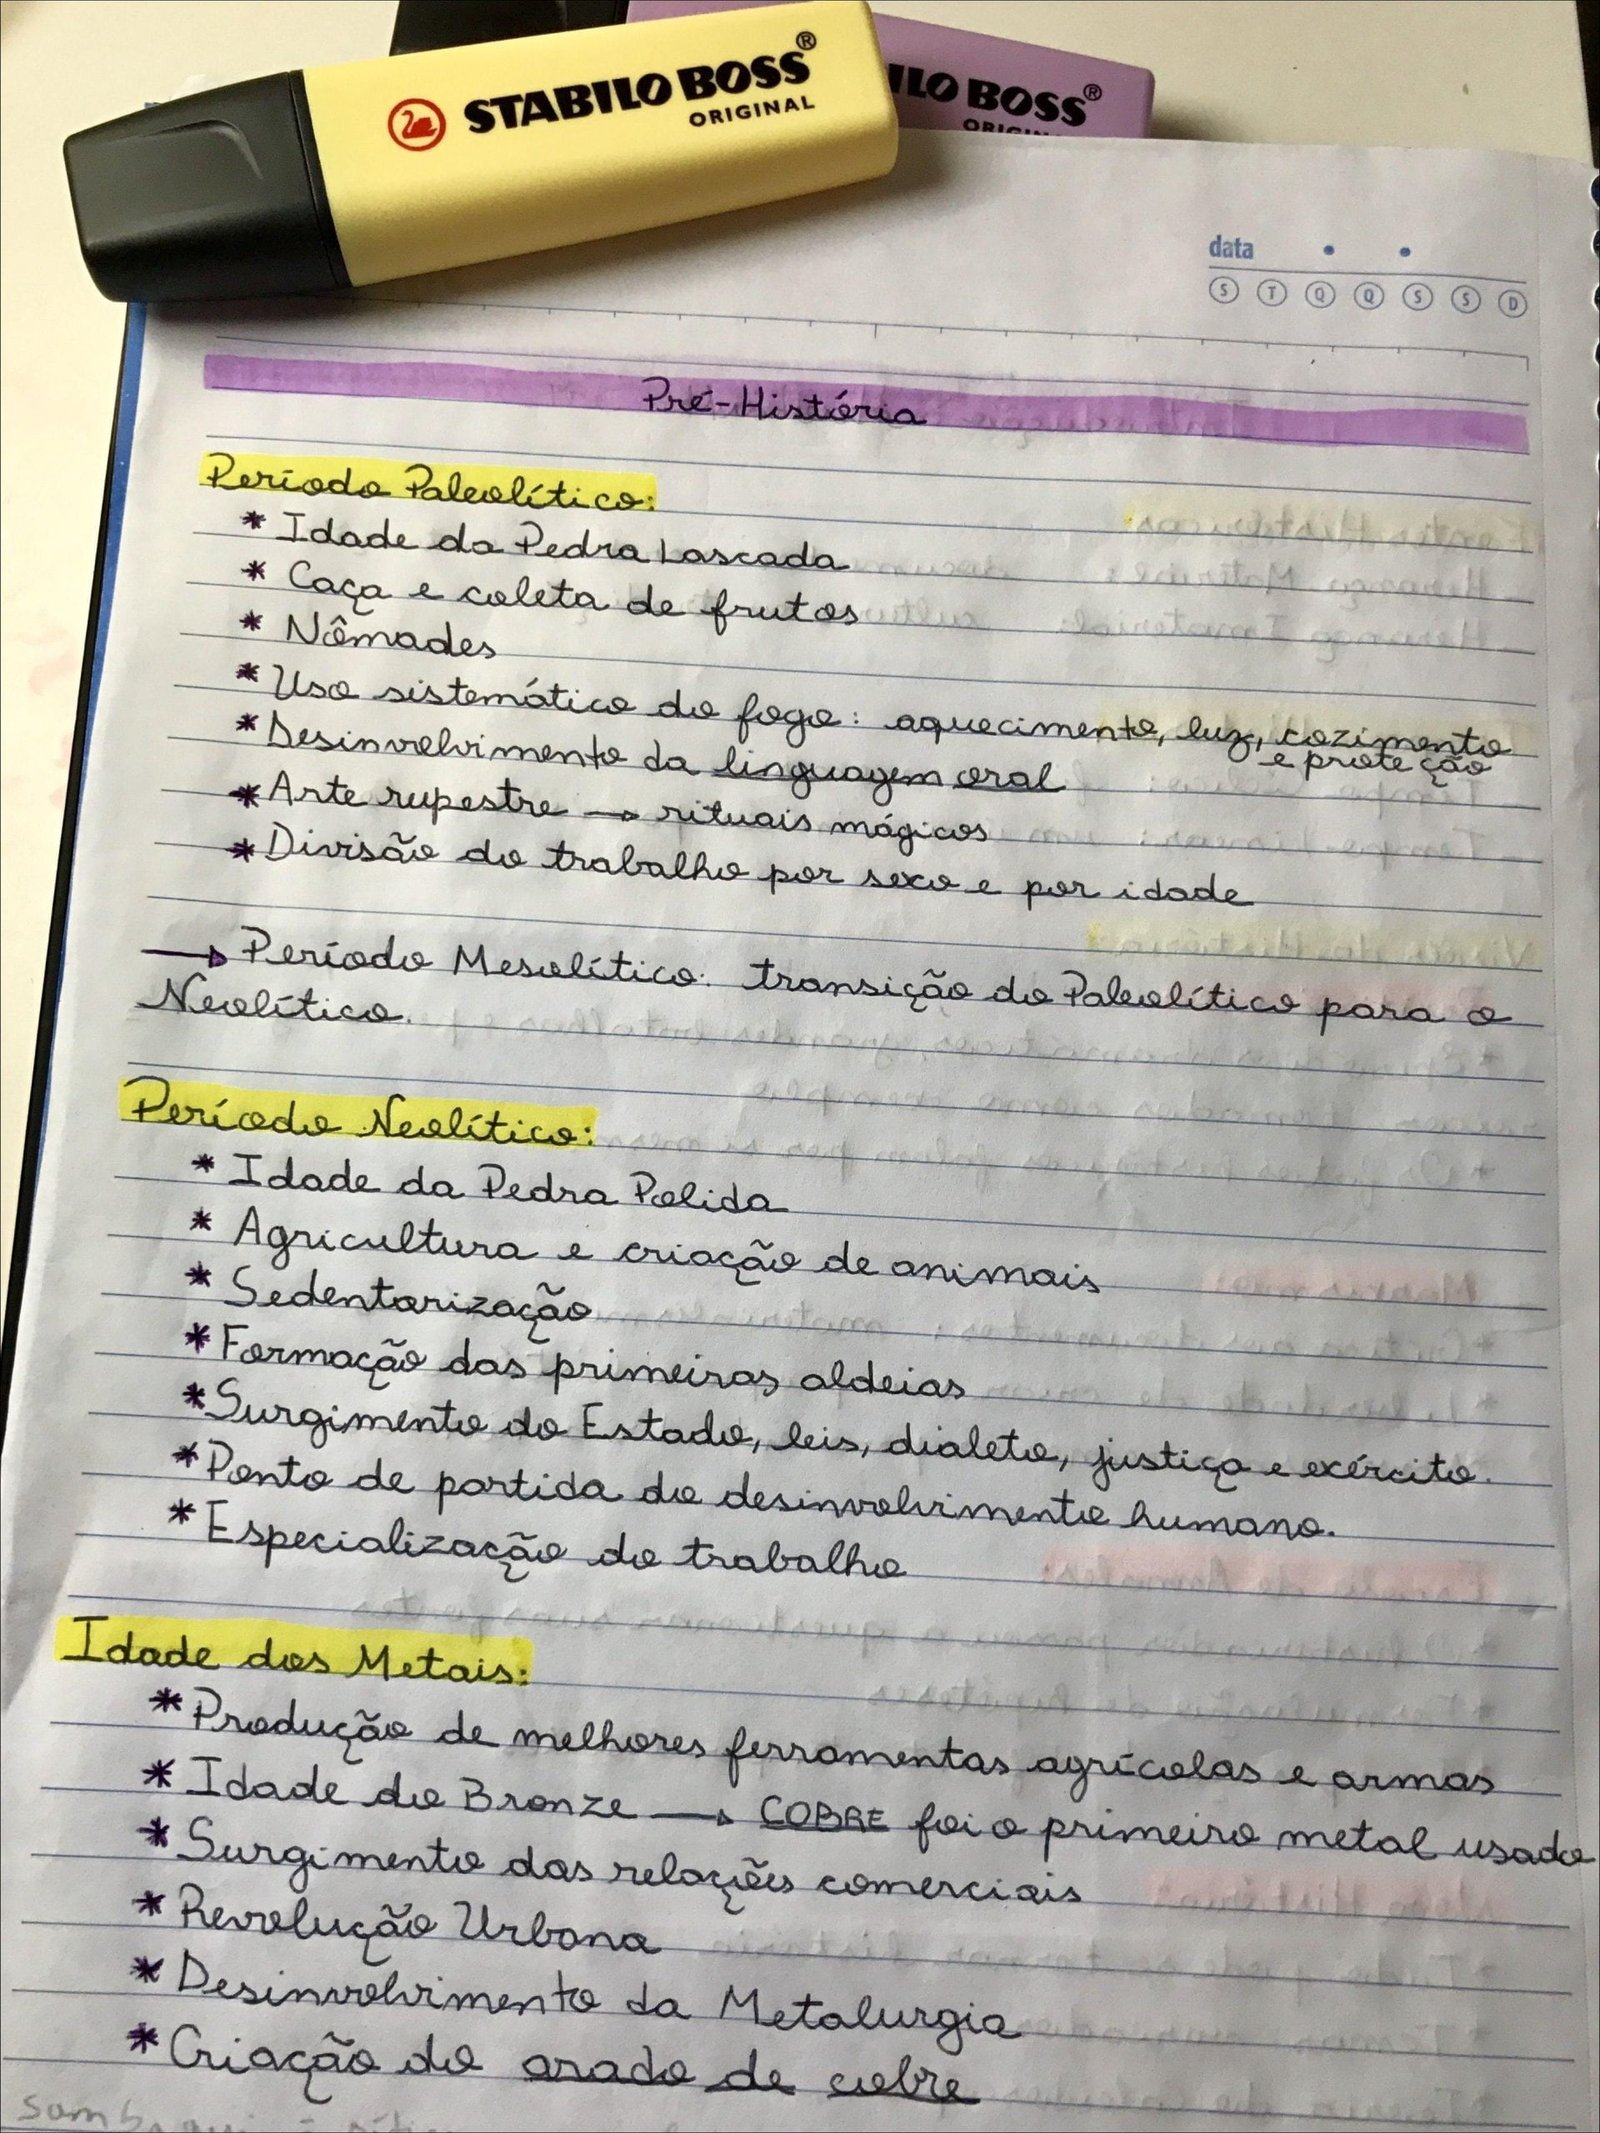 STABILO BOSS®
ORIGINAL
ILO BOSS®
ORIGIN
data
S T Q Q S S D
Pré-História
Período Paleolítico:
* Idade da Pedra Lascada
* Caça e coleta de frutos
* Nômades
* Uso sistemático do fogo: aquecimento, luz, cozimento
e proteção
* Desinvolvimento da linguagem oral
* Arte rupestre → rituais mágicos
* Divisão do trabalho por sexo e por idade
→ Período Mesolítico: transição do Paleolítico para o
Neolítico.
Período Neolítico:
* Idade da Pedra Polida
* Agricultura e criação de animais
* Sedentarização
* Formação das primeiras aldeias
* Surgimento do Estado, leis, dialeto, justiça e exército.
* Ponto de partida do desinvolvimento humano.
* Especialização do trabalho
Idade dos Metais:
* Produção de melhores ferramentas agrícolas e armas
* Idade do Bronze → COBRE foi o primeiro metal usado
* Surgimento das relações comerciais
* Revolução Urbana
* Desinvolvimento da Metalurgia
* Criação do arado de cobre